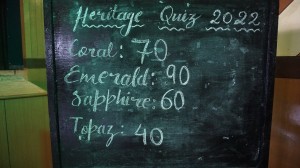 Heritage Quiz 2022
Coral: 70
Emerald: 90
Sapphire: 60
Topaz: 40